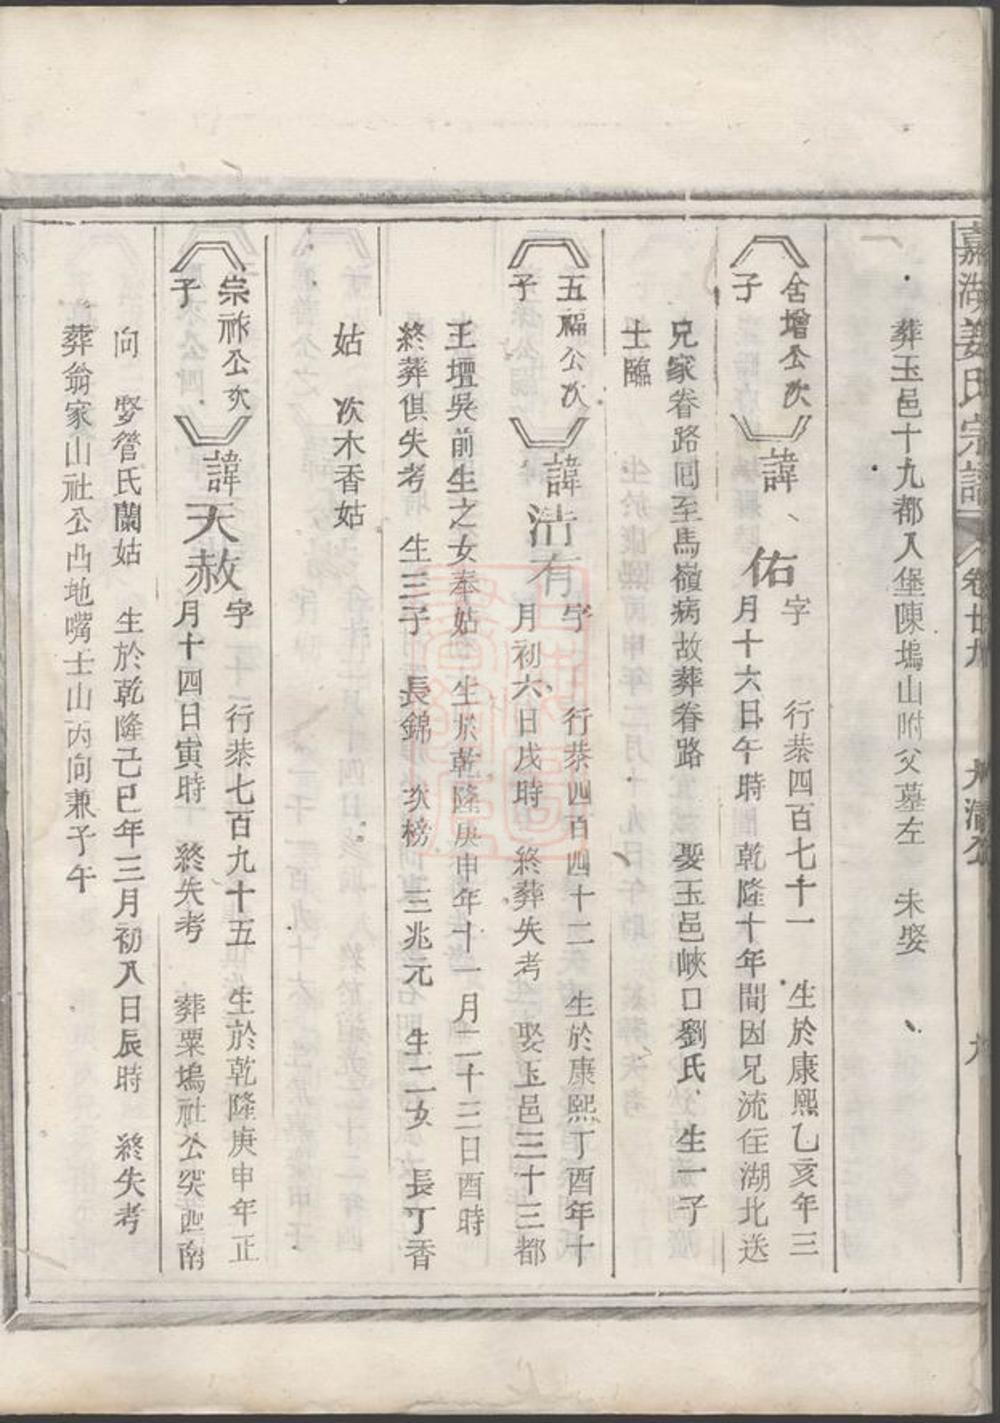 嘉湖姜氏宗譜 卷廿九 九
葬玉邑十九都八堡陳塢山附父墓左 未娶
舍增公次子 諱佑 字 行恭四百七十一 生於康熙乙亥年三
月十六日午時 乾隆十年間因兄流住湖北送
兄家眷路囘至馬嶺病故葬眷路 娶玉邑峽口劉氏 生一子
士臨
五福公次子 諱浩有 字 行恭四百四十二 生於康熙丁酉年十
月初六日戌時 終葬失考 娶玉邑三十三都
王壇吳前生之女奉姑 生於乾隆庚申年十一月二十三日酉時
終葬俱失考 生三子 長錦 次榜 三兆元 生二女 長丁香
姑 次木香姑
宗祚公次子 諱天赦 字 行恭七百九十五 生於乾隆庚申年正
月十四日寅時 終失考 葬粟塢社公突西南
向 娶管氏蘭姑 生於乾隆己巳年三月初八日辰時 終失考
葬翁家山社公凸地嘴士山丙向兼子午